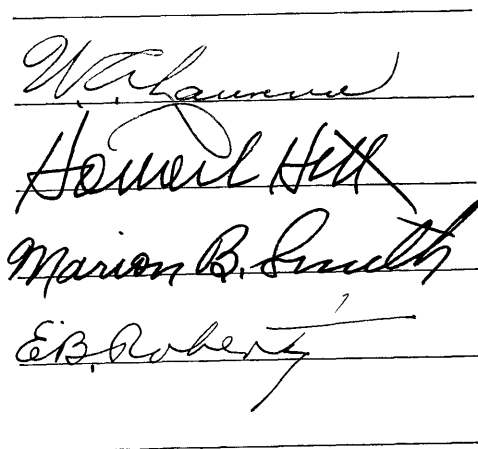 W. A. Lawrence
Howard Hill
Marion B. Smith
E.B. Roberts